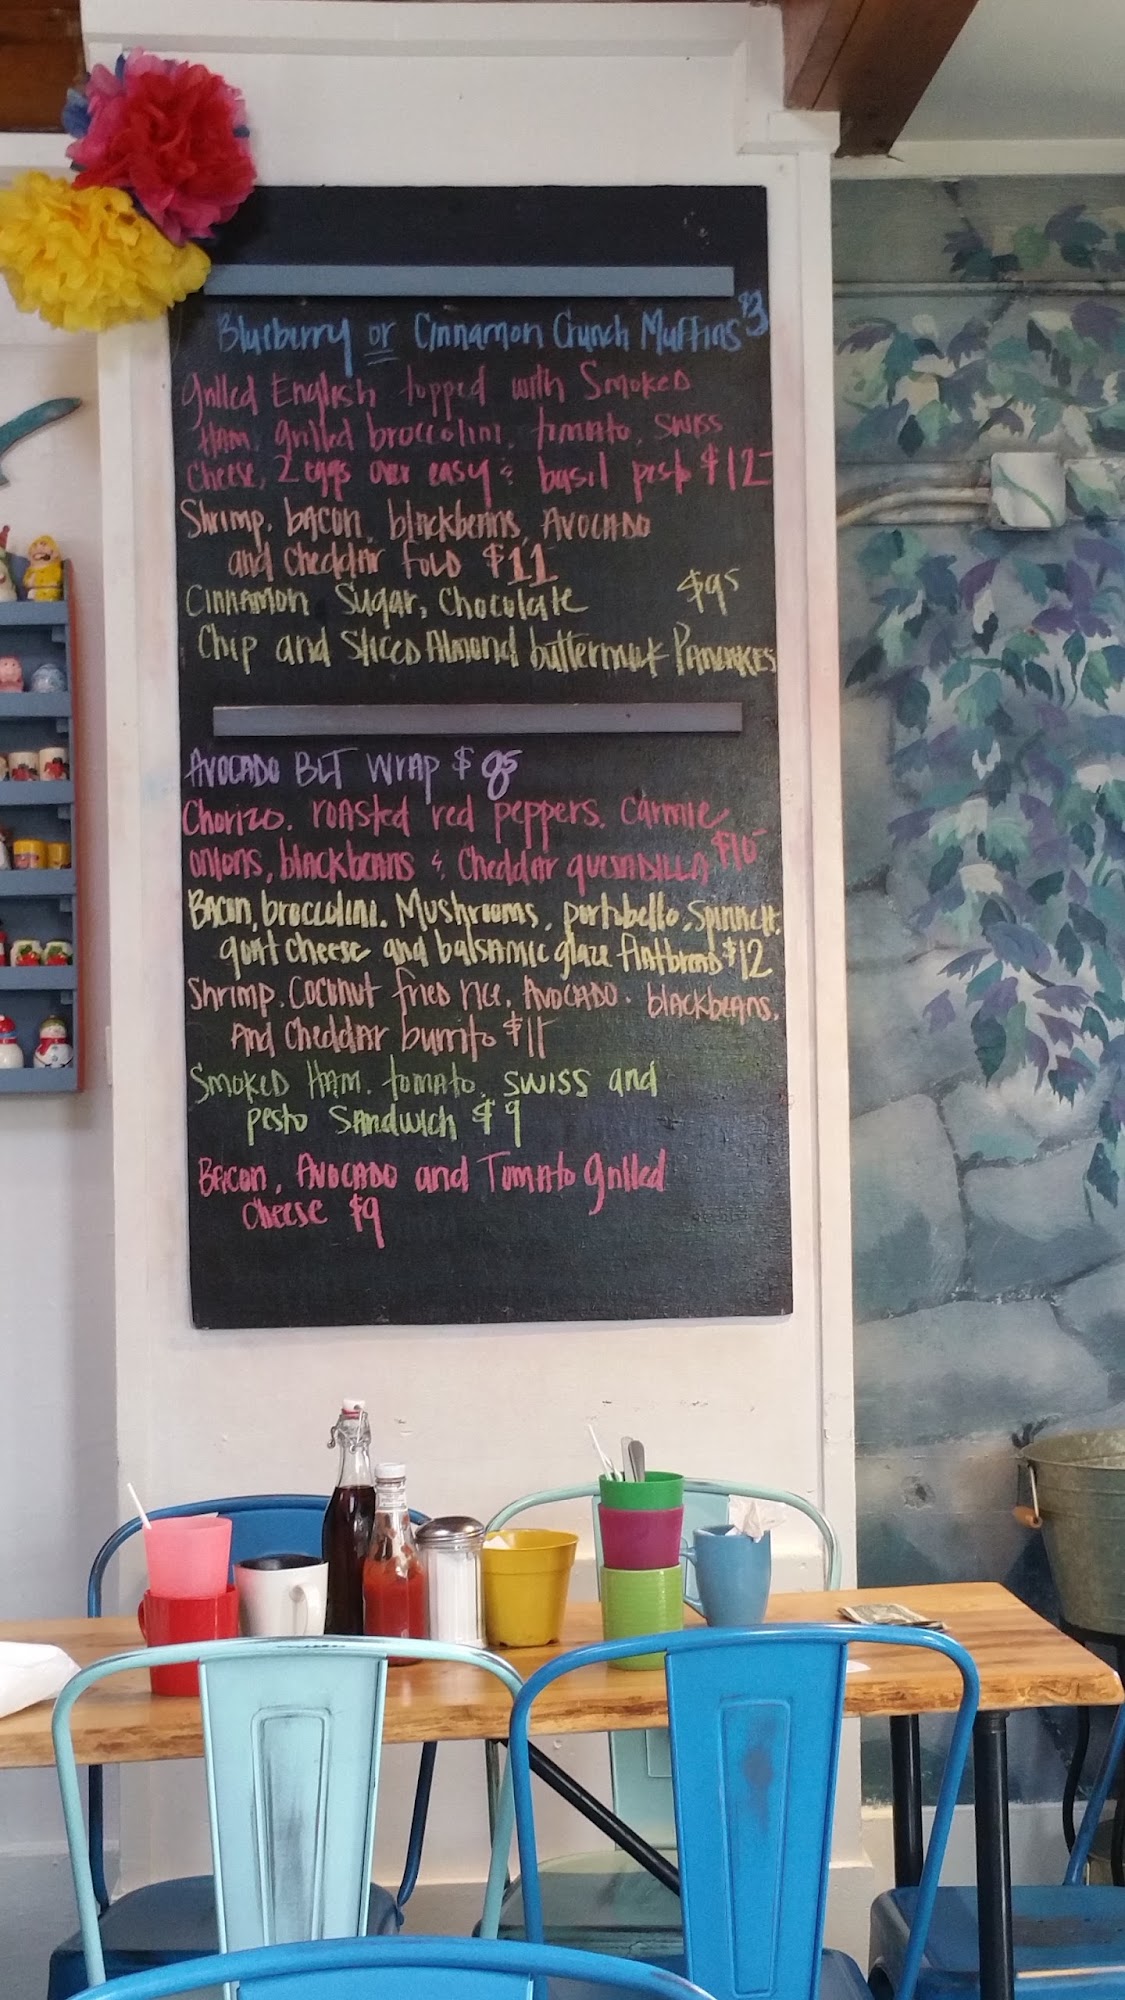 Blueberry or Cinnamon Crunch Muffins $3
Grilled English topped with Smoked
Ham, grilled broccolini, tomato, swiss
cheese, 2 eggs over easy & basil pesto $12
Shrimp, bacon, blackbeans, Avocado
and Cheddar Fold $11
Cinnamon Sugar, Chocolate $95
Chip and Sliced Almond buttermilk Pancakes
Avocado BLT Wrap $
Chorizo, roasted red peppers, carmie
onions, blackbeans & Cheddar quesadilla $10
Bacon, broccolini, Mushrooms, portobello, Spinach,
goat cheese and balsamic glaze flatbread $12
Shrimp, Coconut fried rice, Avocado, blackbeans,
And Cheddar burrito $11
Smoked Ham, tomato, swiss and
pesto Sandwich $9
Bacon, Avocado and Tomato Grilled
Cheese $9